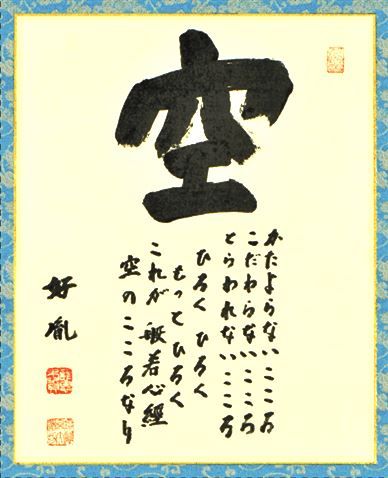 空
かたよらないこころ
こだわらないこころ
とらわれないこころ
ひろく ひろく
もっとひろく
これが 般若心經
空のこころなり
好胤